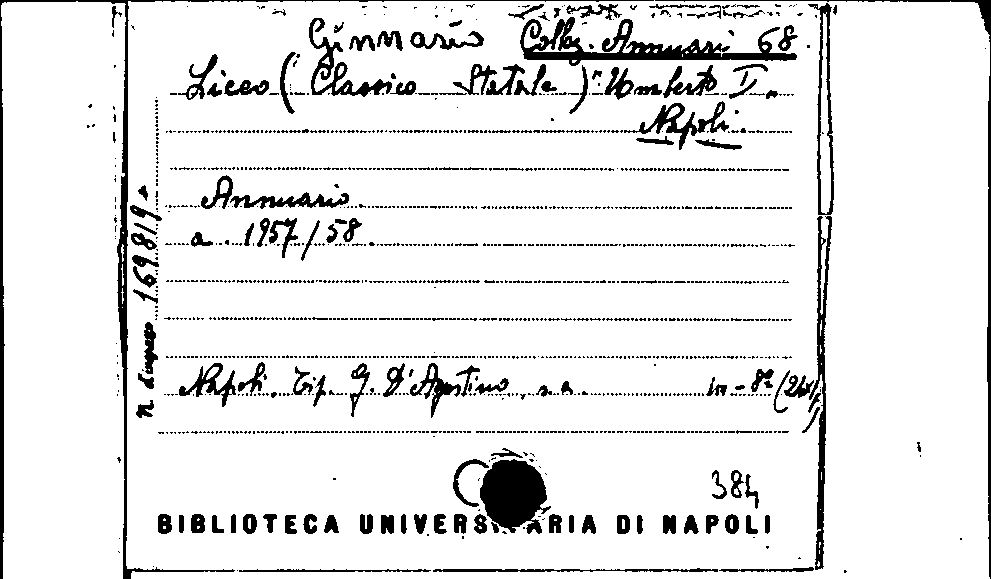 Ginnasio Colloz. Annuari 68
Liceo (Classico Statale) "Umberto I"
Napoli.
Annuario.
a. 1957/58.
n. d'ingresso 169819
Napoli. Tip. G. D'Agostino, s.a. in-8º
384
BIBLIOTECA UNIVERSITARIA DI NAPOLI